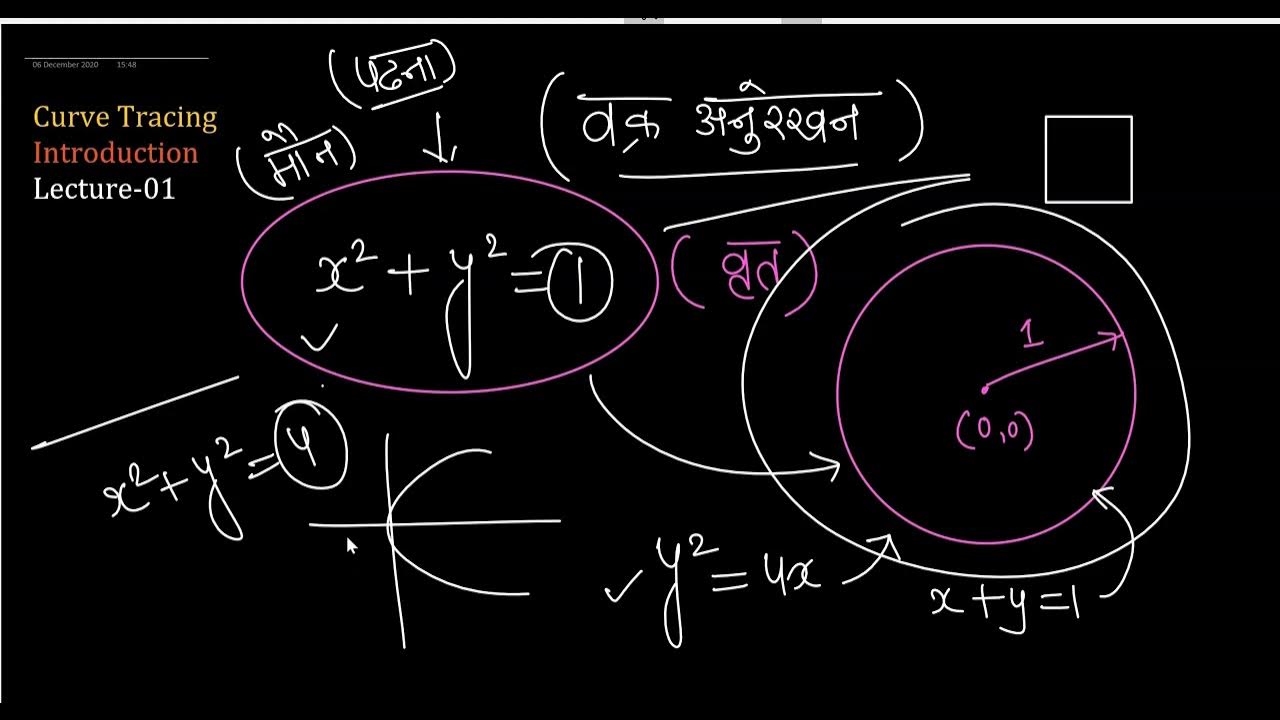 06 December 2020 15:48
Curve Tracing
Introduction
Lecture-01
(पढना)
(मौन)
(वक्र अनुरेखन)
x² + y² = 1
(वृत)
1
(0,0)
x² + y² = 4
y² = 4x
x + y = 1